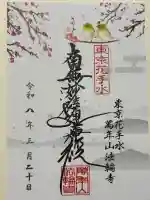 東京花手水
南無妙法蓮華経
東京花手水
萬年山法輪寺
令和八年三月二十日